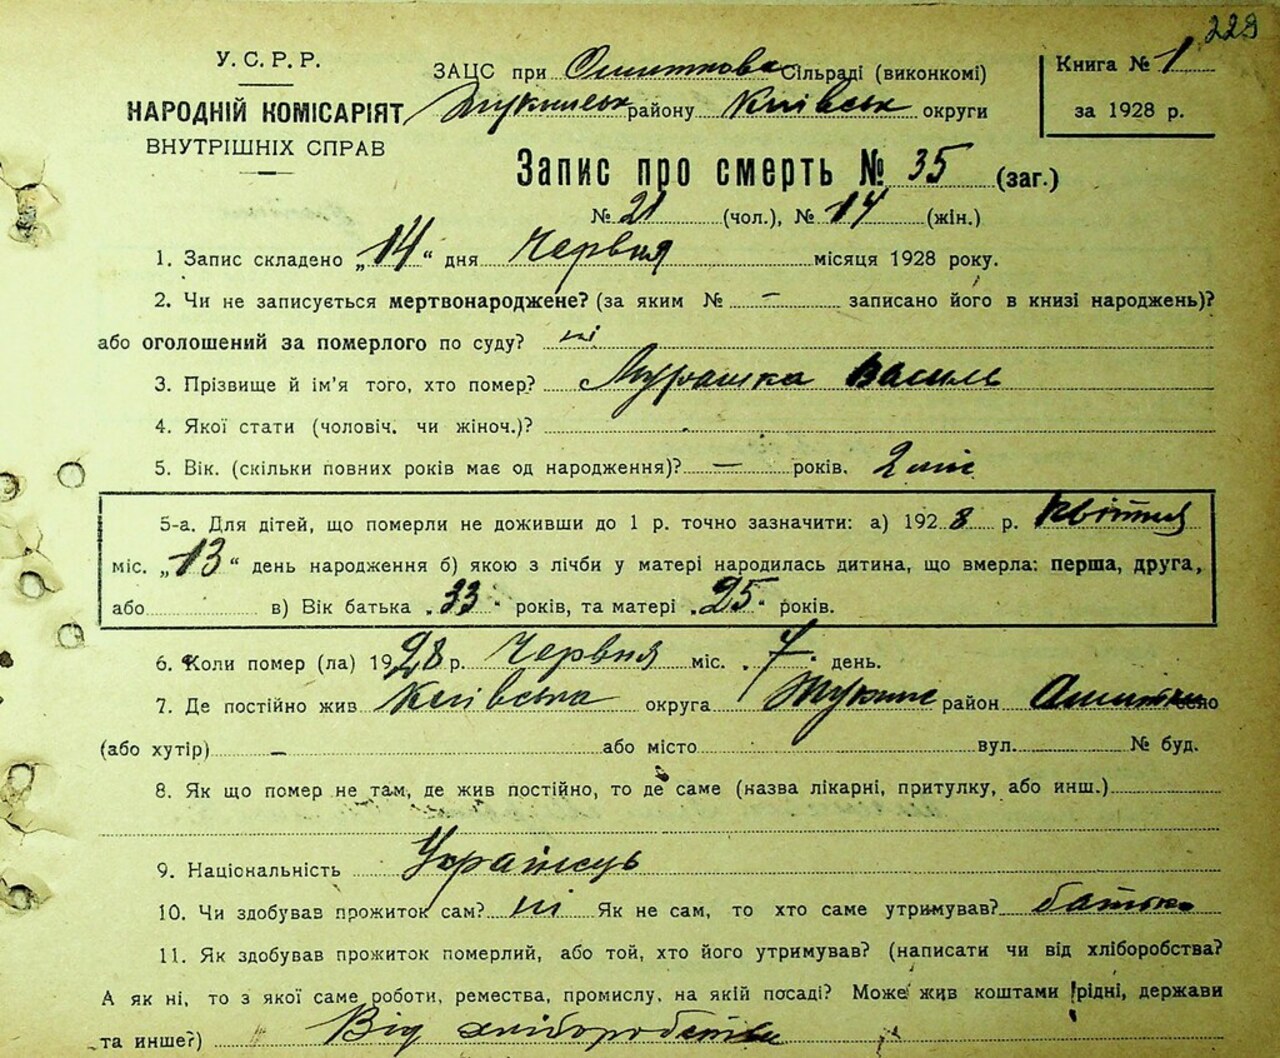 229
У. С. Р. Р.
НАРОДНІЙ КОМІСАРІЯТ
ВНУТРІШНІХ СПРАВ
ЗАЦС при Ошиткова Сільраді (виконкомі)
району Київськ округи
Книга № 1
за 1928 р.
Запис про смерть № 35 (заг.)
№ 21 (чол.), № 14 (жін.)
1. Запис складено „14“ дня Червня місяця 1928 року.
2. Чи не записується мертвонароджене? (за яким № — записано його в книзі народжень)?
або оголошений за померлого по суду? ні
3. Прізвище й ім'я того, хто помер? Мурашка Василь
4. Якої стати (чоловіч. чи жіноч.)?
5. Вік. (скільки повних років має од народження)? — років. 2 міс
5-а. Для дітей, що померли не доживши до 1 р. точно зазначити: а) 1928 р. Квітня
міс. „13“ день народження б) якою з лічби у матері народилась дитина, що вмерла: перша, друга,
або в) Вік батька „33“ років, та матері „25“ років.
6. Коли помер (ла) 1928 р. Червня міс. „7“ день.
7. Де постійно жив Київська округа Жукинс район село
(або хутір) — або місто вул. № буд.
8. Як що помер не там, де жив постійно, то де саме (назва лікарні, притулку, або инш.)
9. Національність Українець
10. Чи здобував прожиток сам? ні Як не сам, то хто саме утримував? батько
11. Як здобував прожиток померлий, або той, хто його утримував? (написати чи від хліборобства?
А як ні, то з якої саме роботи, ремества, промислу, на якій посаді? Може жив коштами рідні, держави
та инше?) Від хліборобства